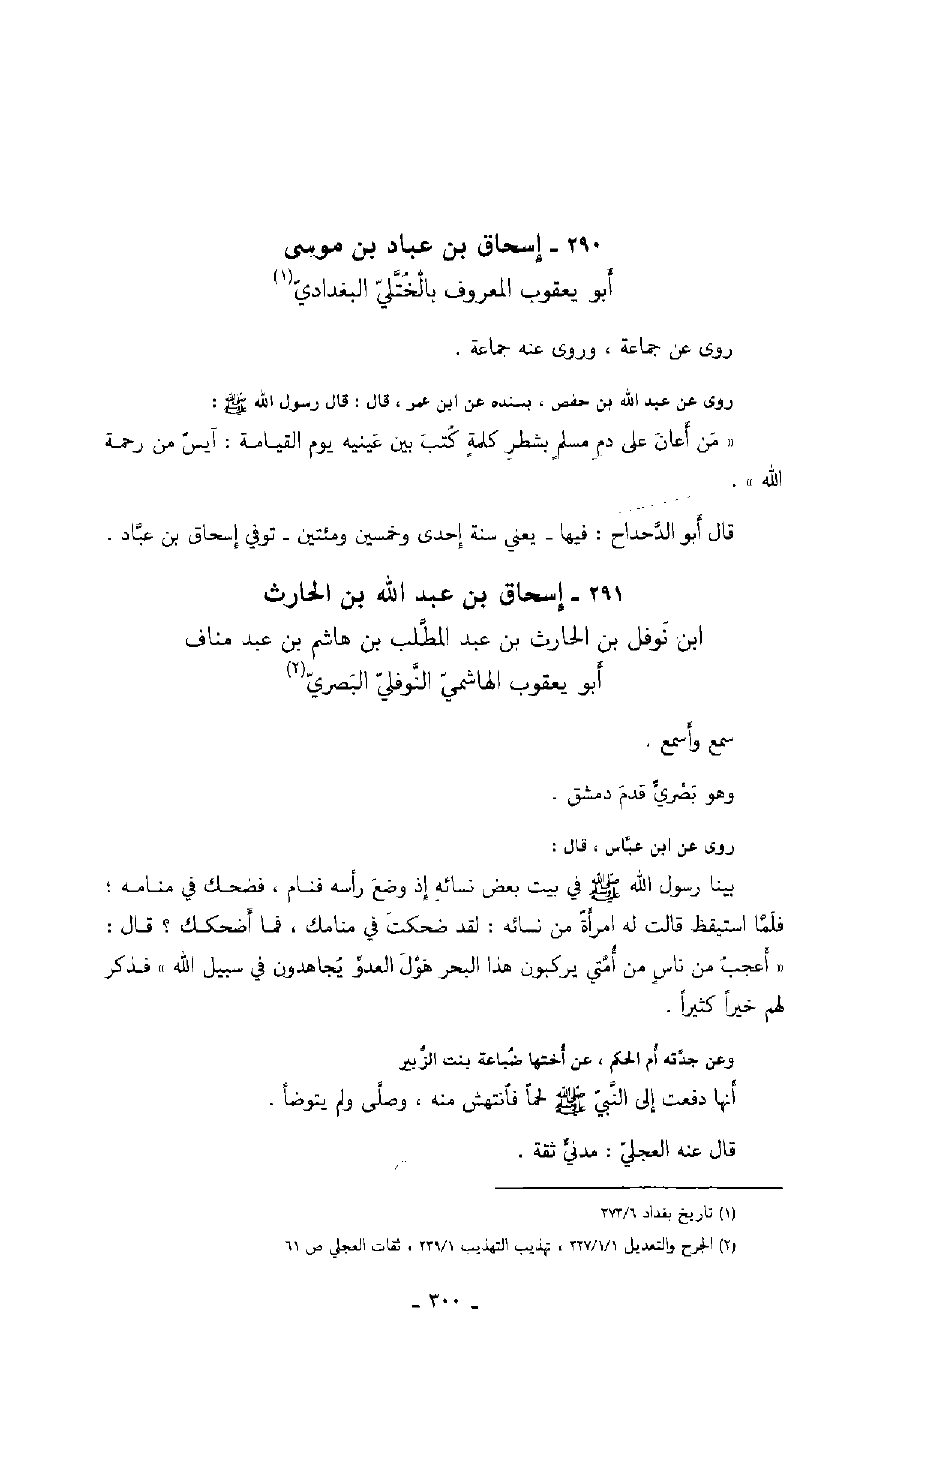 ٢٩٠ ـ إسحاق بن عباد بن موسى
أبو يعقوب المعروف بالخُتَّليّ البغداديّ(١)
روى عن جماعة ، وروى عنه جماعة .
روى عن عبد الله بن حفص ، بسنده عن ابن عمر ، قال : قال رسول الله ﷺ :
« مَن أَعانَ على دمِ مسلمٍ بشطرِ كلمةٍ كُتبَ بين عَينيه يوم القيامـة : آيسٌ من رحمـة
الله » .
قال أَبو الدَّحداح : فيها ـ يعني سنة إحدى وخمسين ومئتين ـ توفي إسحاق بن عبَّاد .
٢٩١ ـ إسحاق بن عبد الله بن الحارث
ابن نَوفل بن الحارث بن عبد المطَّلب بن هاشم بن عبد مناف
أَبو يعقوب الهاشميّ النَّوفليّ البَصريّ(٢)
سمع وأَسمع .
وهو بَصْريٌّ قدمَ دمشق .
روى عن ابن عبَّاس ، قال :
بينا رسول الله ﷺ في بيت بعض نسائهِ إذ وضعَ رأسه فنـام ، فضحـك في منـامـه ؛
فلَمَّا استيقظ قالت له امرأَةٌ من نسائه : لقد ضحكتَ في منامك ، فما أَضحكـك ؟ قـال :
« أَعجبُ من ناسٍ من أُمَّتي يركبون هذا البحر هَوْلَ العدوِّ يُجاهدون في سبيل الله » فـذكر
لهم خيراً كثيراً .
وعن جدَّته أُم الحكم ، عن أُختها ضُباعة بنت الزُّبير
أَنها دفعت إلى النَّبيّ ﷺ لحماً فأنتهش منه ، وصلَّى ولم يتوضأَ .
قال عنه العجليّ : مدنيٌّ ثقة .
(١) تاريخ بغداد ٢٧٣/٦
(٢) الجرح والتعديل ٢٢٧/١/١ ، تهذيب التهذيب ٢٣٩/١ ، ثقات العجلي ص ٦١
ـ ٣٠٠ ـ